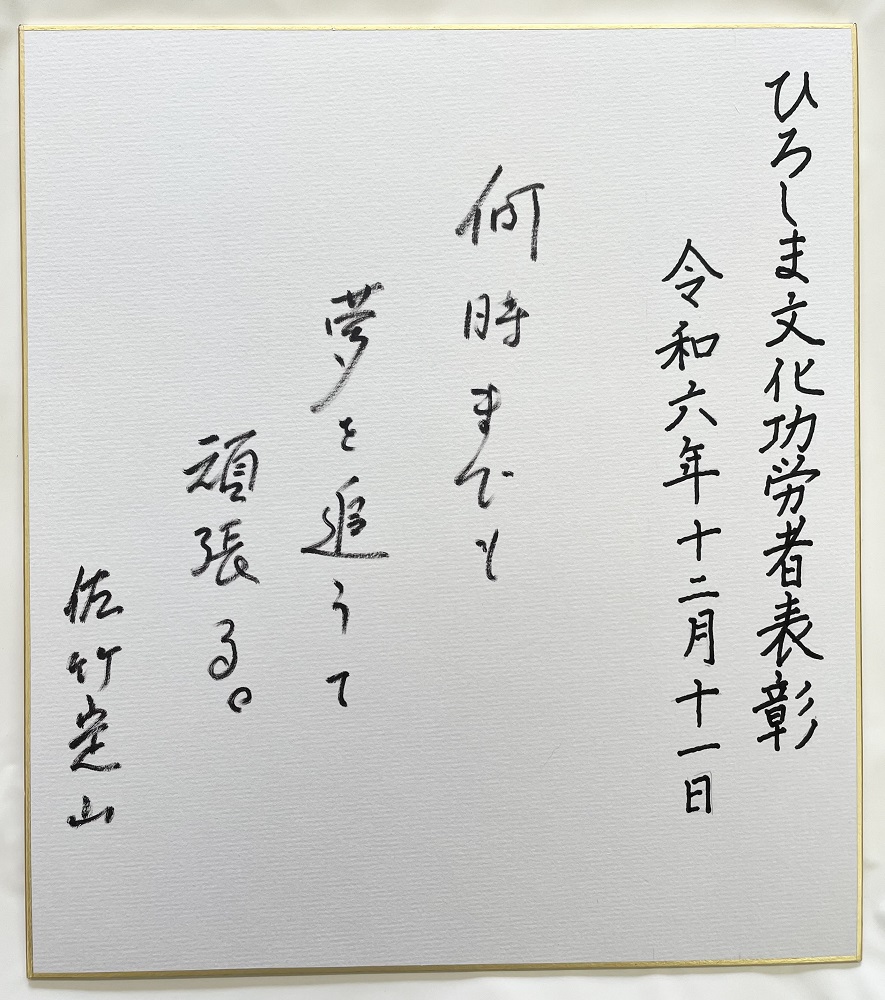 ひろしま文化功労者表彰
令和六年十二月十一日
何時までも
夢を追うて
頑張る。
佐竹定山